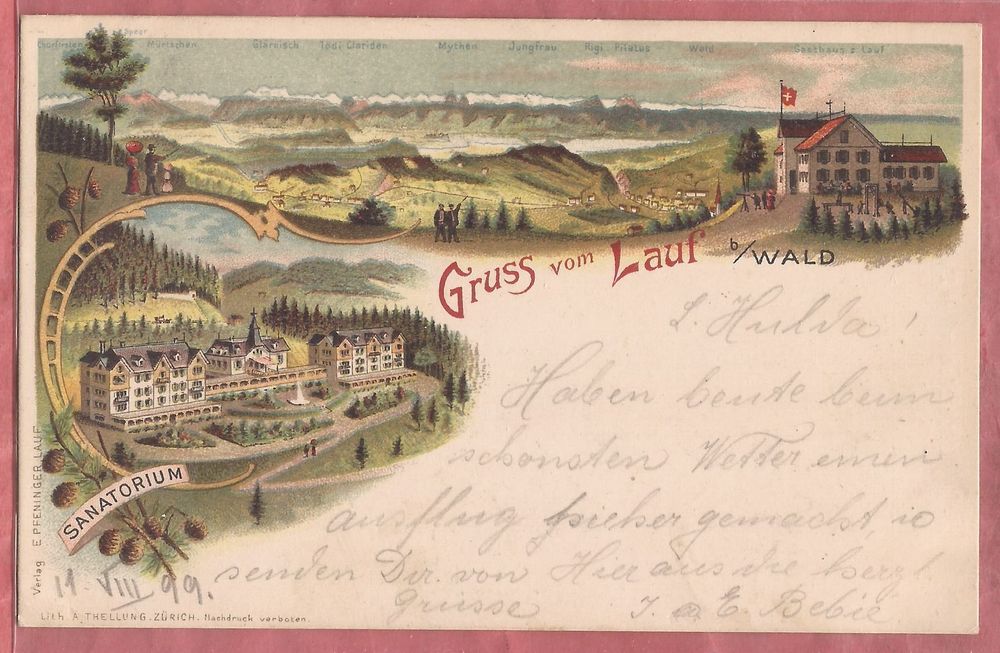 Speer
Churfirsten Mürtschen Glärnisch Tödi Clariden Mythen Jungfrau Rigi Pilatus Wald Gasthaus z. Lauf
Gruss vom Lauf b/WALD
L. Hulda!
Haben heute beim
schönsten Wetter einen
ausflug hieher gemacht u
senden Dir von Hier aus die herzl.
Grüsse J. & E. Bebie
SANATORIUM
11. VIII 99.
Verlag E. PFENINGER, LAUF
Lith. A. THELLUNG. ZÜRICH. Nachdruck verboten.